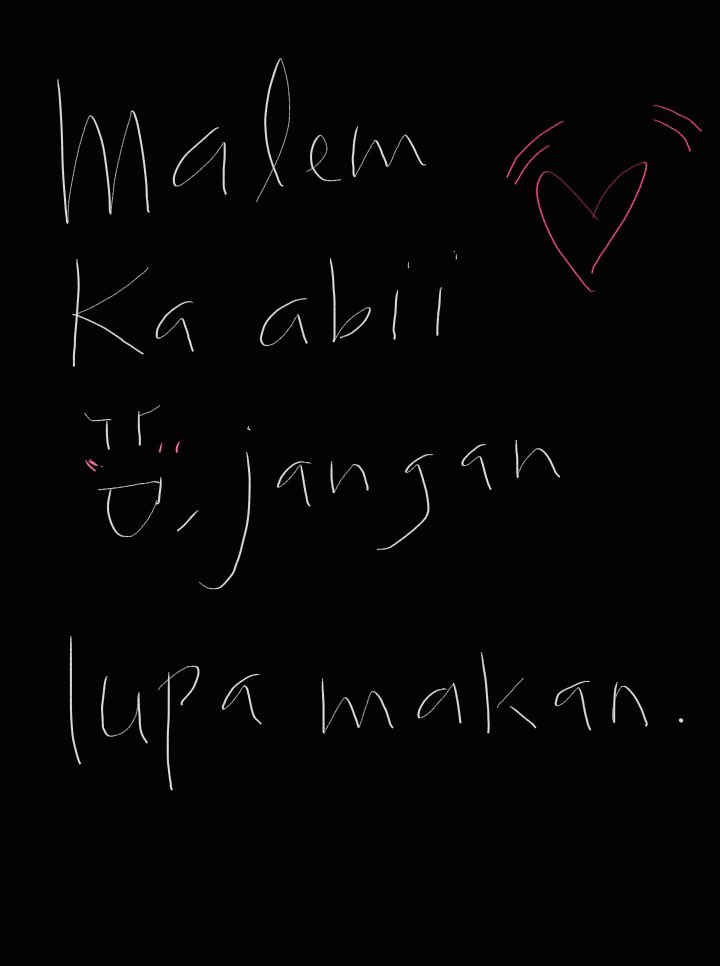 Malem
Ka abii
, jangan
lupa makan.